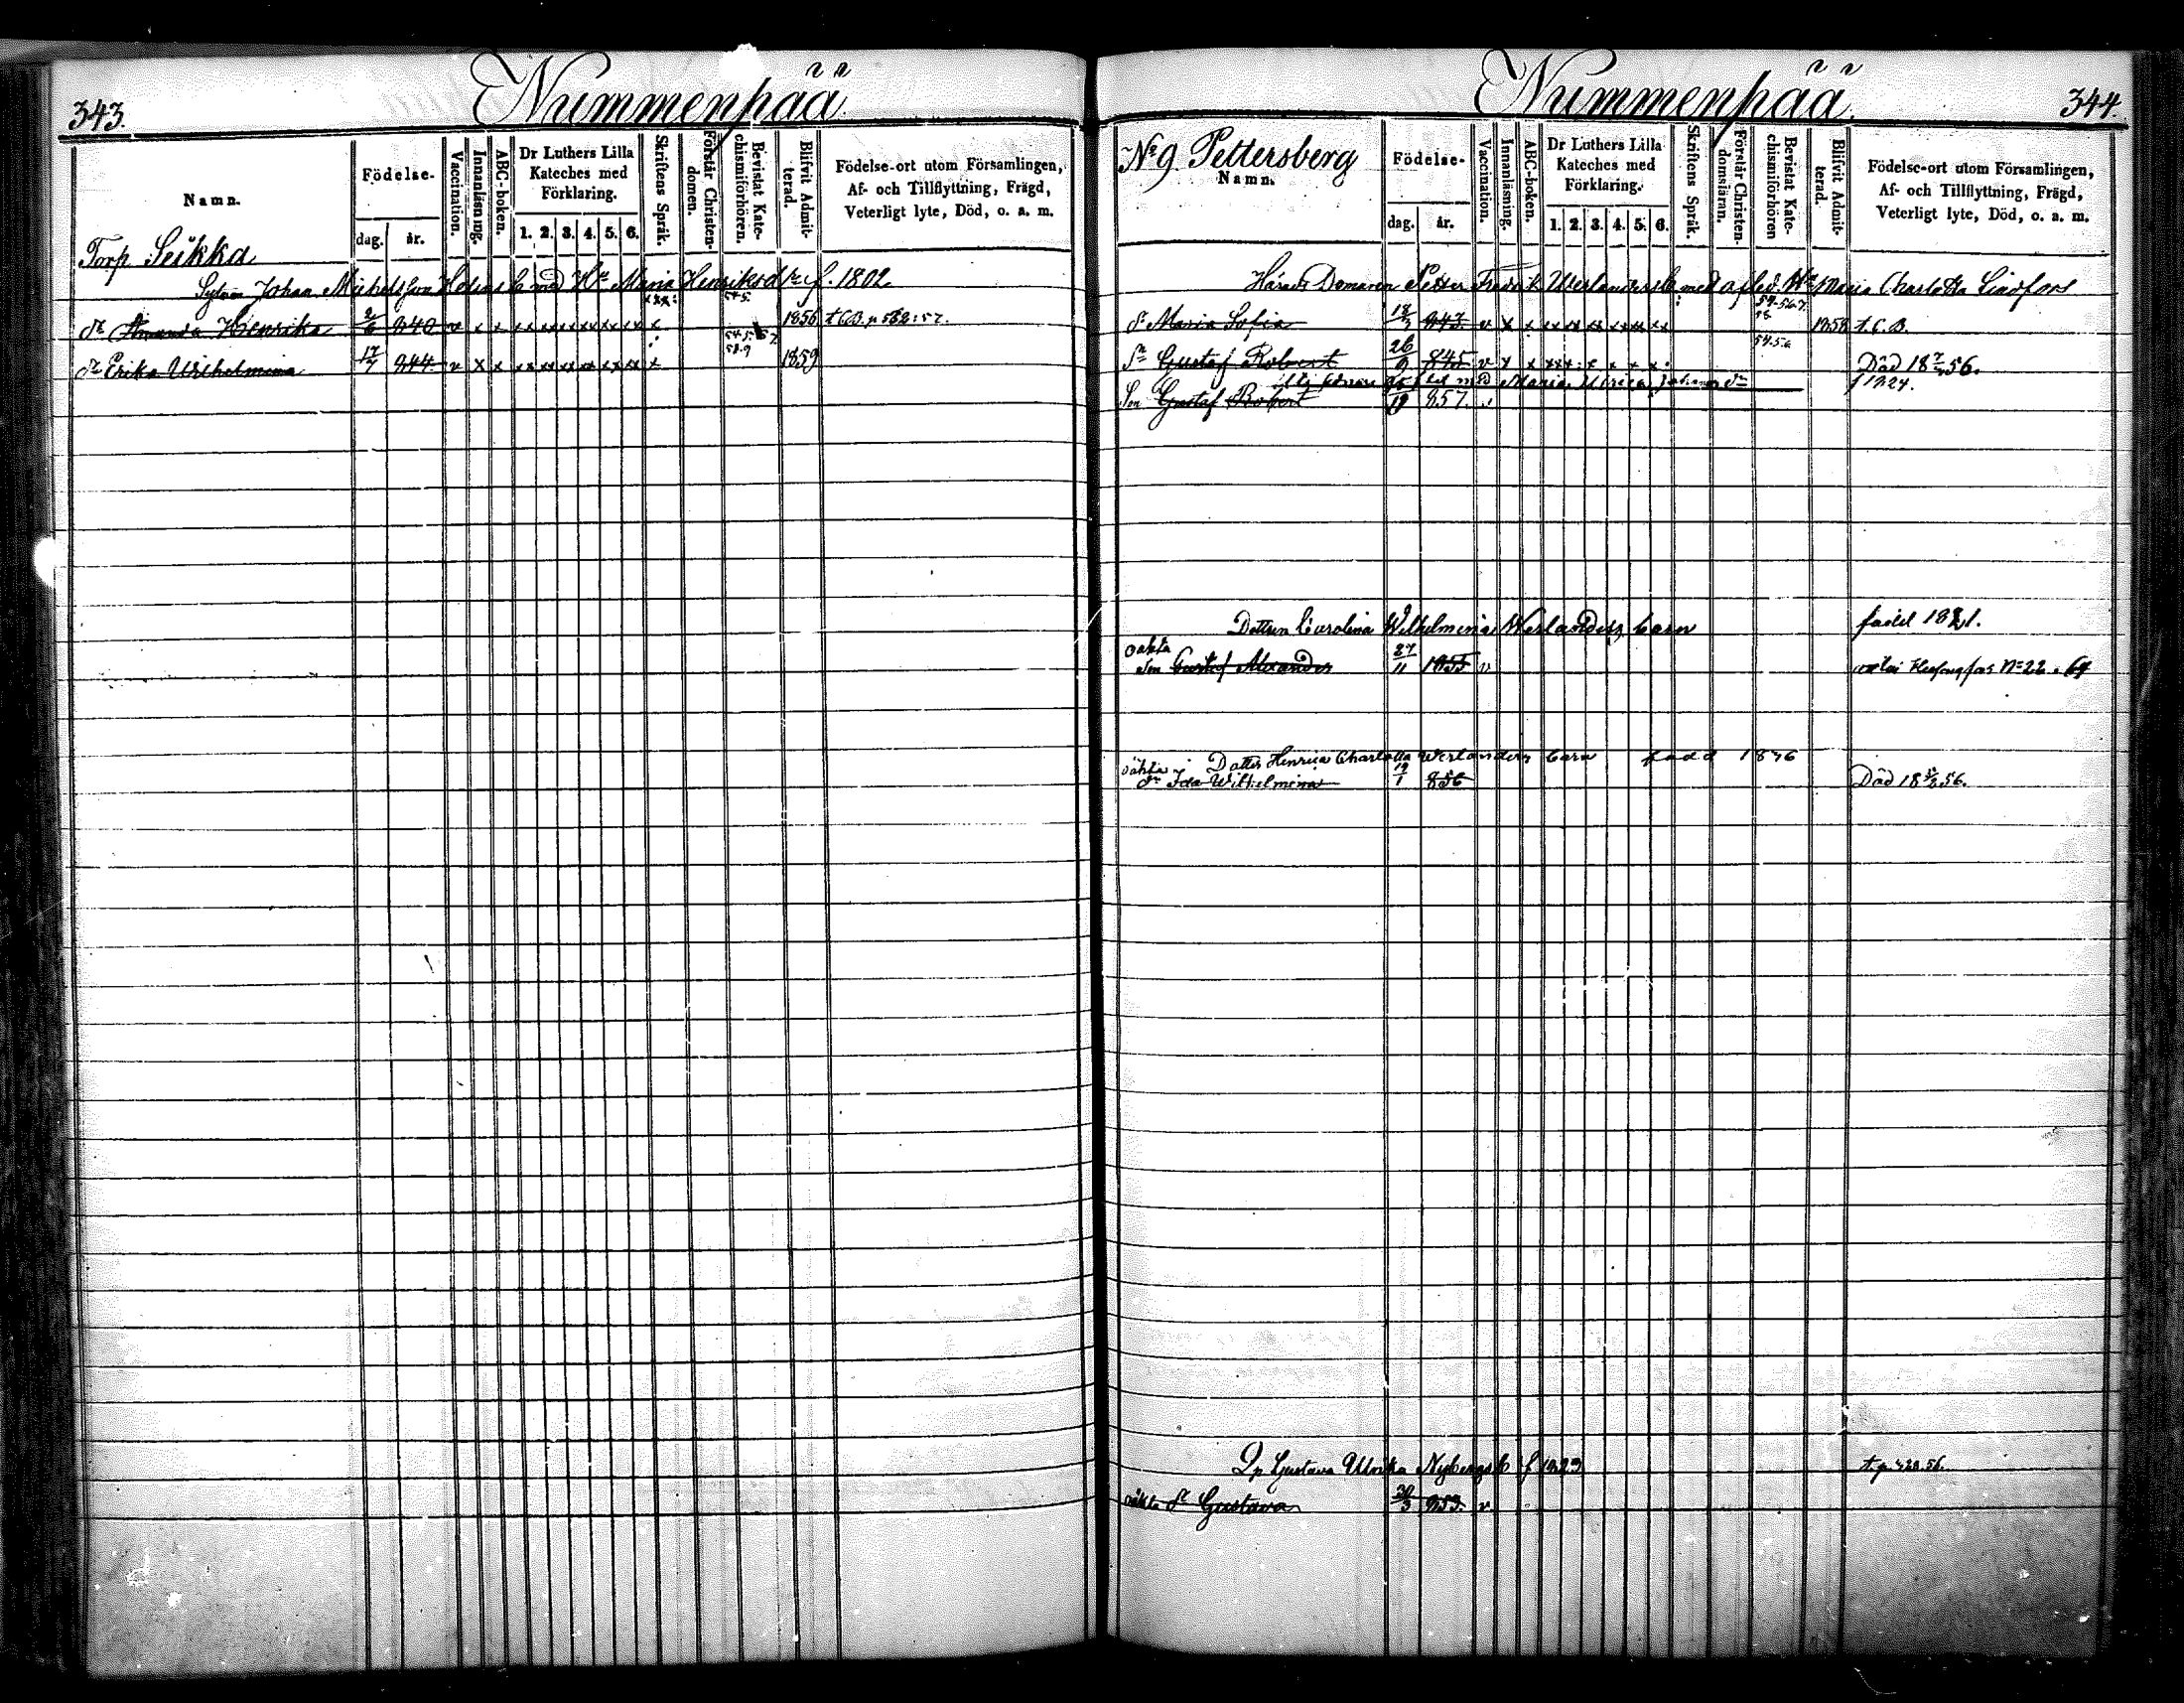 343.
Nummenpää.
Namn.
Födelse-
dag.
år.
Vaccination.
Innanläsning.
ABC-boken.
Dr Luthers Lilla
Kateches med
Förklaring.
1. 2. 3. 4. 5. 6.
Skriftens Språk.
Förstår Christen-
domen.
Bevistat Kate-
chismiförhören.
Blifvit Admit-
terad.
Födelse-ort utom Församlingen,
Af- och Tillflyttning, Frägd,
Veterligt lyte, Död, o. a. m.
Torp Seikka
Johan Michelsson b med Maria Henriksdr f. 1802
dr Amanda Henrika 2/6 840 v x x 1856
dr Erika Wilhelmina 17/7 844 v x x 1859
344.
Nummenpää.
No 9 Pettersberg
Namn.
Födelse-
dag.
år.
Vaccination.
Innanläsning.
ABC-boken.
Dr Luthers Lilla
Kateches med
Förklaring.
1. 2. 3. 4. 5. 6.
Skriftens Språk.
Förstår Christen-
domsläran.
Bevistat Kate-
chismiförhören
Blifvit Admit-
terad.
Födelse-ort utom Församlingen,
Af- och Tillflyttning, Frägd,
Veterligt lyte, Död, o. a. m.
Härads Domaren Petter Fredrik Werlanders b med Maria Charlotta Lindfors
dr Maria Sofia 18/3 843 v x x 1858
Gustaf Robert 26/9 845 v x x Död 56.
med Maria Ulrica f 1824.
Son Gustaf Robert 857
Dottren Carolina Wilhelmina Werlanders barn född 1821.
oäkta
Son Gustaf Alexander 27/11 1855 v
Dotter Henrica Charlotta Werlanders barn född
oäkta
dr Ida Wilhelmina 19/1 856 Död 56.
Gustava Ulrika Nybergs b f 1823
oäkta dr Gustava 30/3 853 v